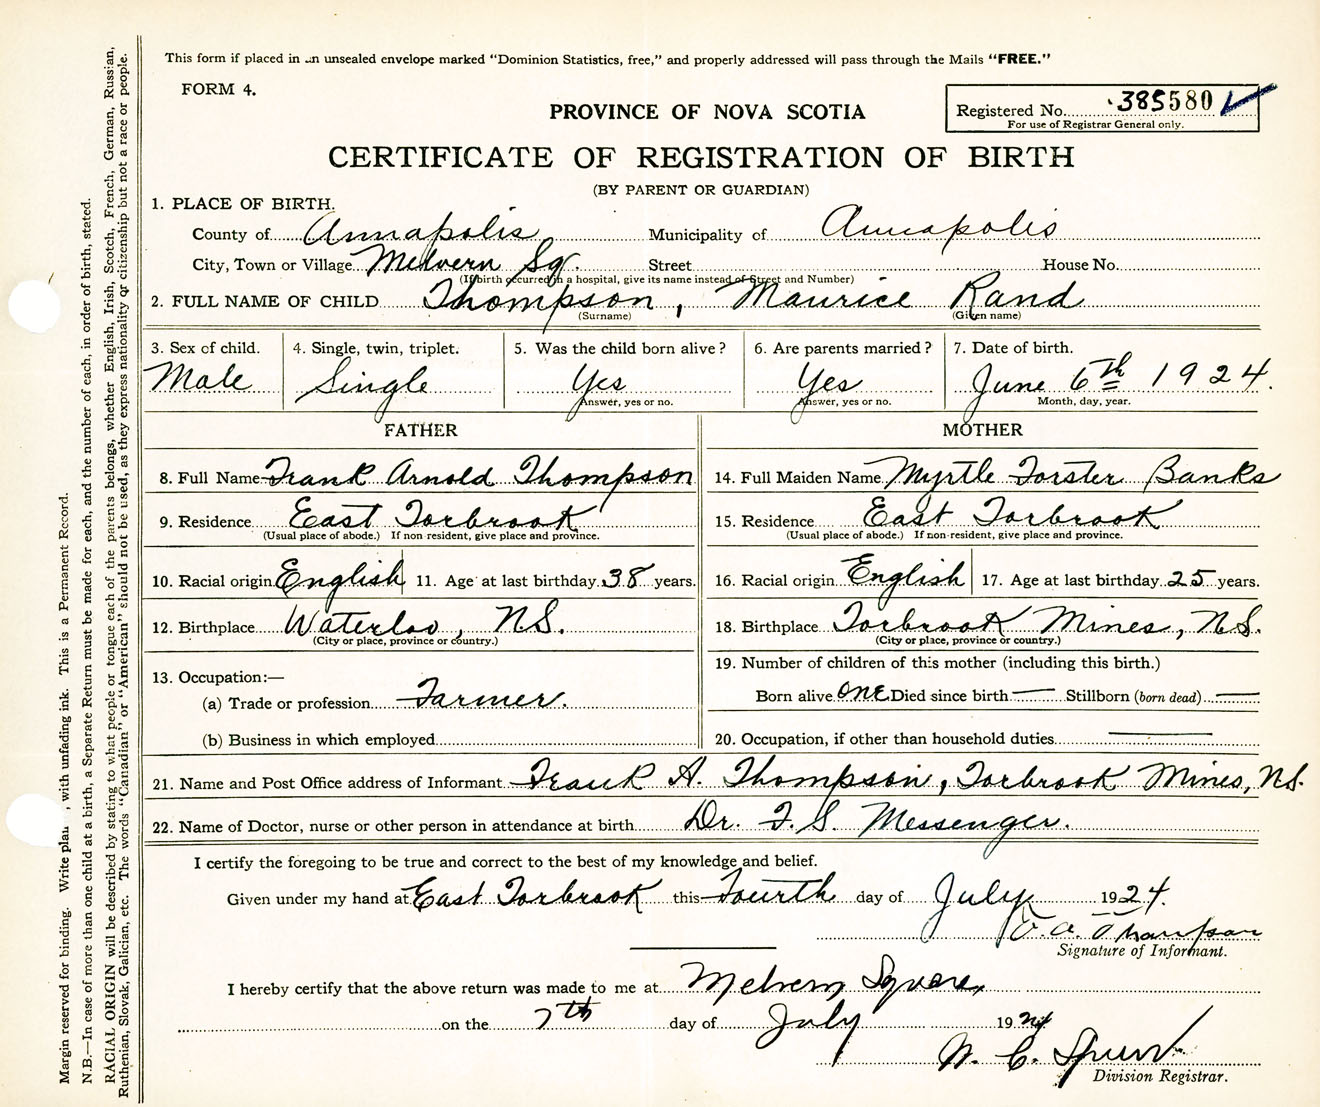 This form if placed in an unsealed envelope marked "Dominion Statistics, free," and properly addressed will pass through the Mails "FREE."
FORM 4.
Registered No. 385580
For use of Registrar General only.
PROVINCE OF NOVA SCOTIA
CERTIFICATE OF REGISTRATION OF BIRTH
(BY PARENT OR GUARDIAN)
1. PLACE OF BIRTH.
County of Annapolis Municipality of Annapolis
City, Town or Village Melvern Sq. Street House No.
(If birth occurred in a hospital, give its name instead of Street and Number)
2. FULL NAME OF CHILD Thompson, Maurice Rand
(Surname) (Given name)
3. Sex of child. 4. Single, twin, triplet. 5. Was the child born alive? 6. Are parents married? 7. Date of birth.
Male Single Yes Yes June 6th 1924.
Answer, yes or no. Answer, yes or no. Month, day, year.
FATHER MOTHER
8. Full Name Frank Arnold Thompson 14. Full Maiden Name Myrtle Forster Banks
9. Residence East Torbrook 15. Residence East Torbrook
(Usual place of abode.) If non-resident, give place and province. (Usual place of abode.) If non-resident, give place and province.
10. Racial origin English 11. Age at last birthday 38 years. 16. Racial origin English 17. Age at last birthday 25 years.
12. Birthplace Waterloo, N.S. 18. Birthplace Torbrook Mines, N.S.
(City or place, province or country.) (City or place, province or country.)
13. Occupation:— 19. Number of children of this mother (including this birth.)
(a) Trade or profession Farmer. Born alive one Died since birth — Stillborn (born dead) —
(b) Business in which employed 20. Occupation, if other than household duties —
21. Name and Post Office address of Informant Frank A. Thompson, Torbrook Mines, N.S.
22. Name of Doctor, nurse or other person in attendance at birth Dr. F. S. Messenger.
I certify the foregoing to be true and correct to the best of my knowledge and belief.
Given under my hand at East Torbrook this Fourth day of July 1924.
F. A. Thompson
Signature of Informant.
I hereby certify that the above return was made to me at Melvern Square
on the 7th day of July 1924
Division Registrar.
Margin reserved for binding. Write plainly, with unfading ink. This is a Permanent Record.
N.B.—In case of more than one child at a birth, a Separate Return must be made for each, and the number of each, in order of birth, stated.
RACIAL ORIGIN will be described by stating to what people or tongue each of the parents belongs, whether English, Irish, Scotch, French, German, Russian,
Ruthenian, Slovak, Galician, etc. The words "Canadian" or "American" should not be used, as they express nationality or citizenship but not a race or people.